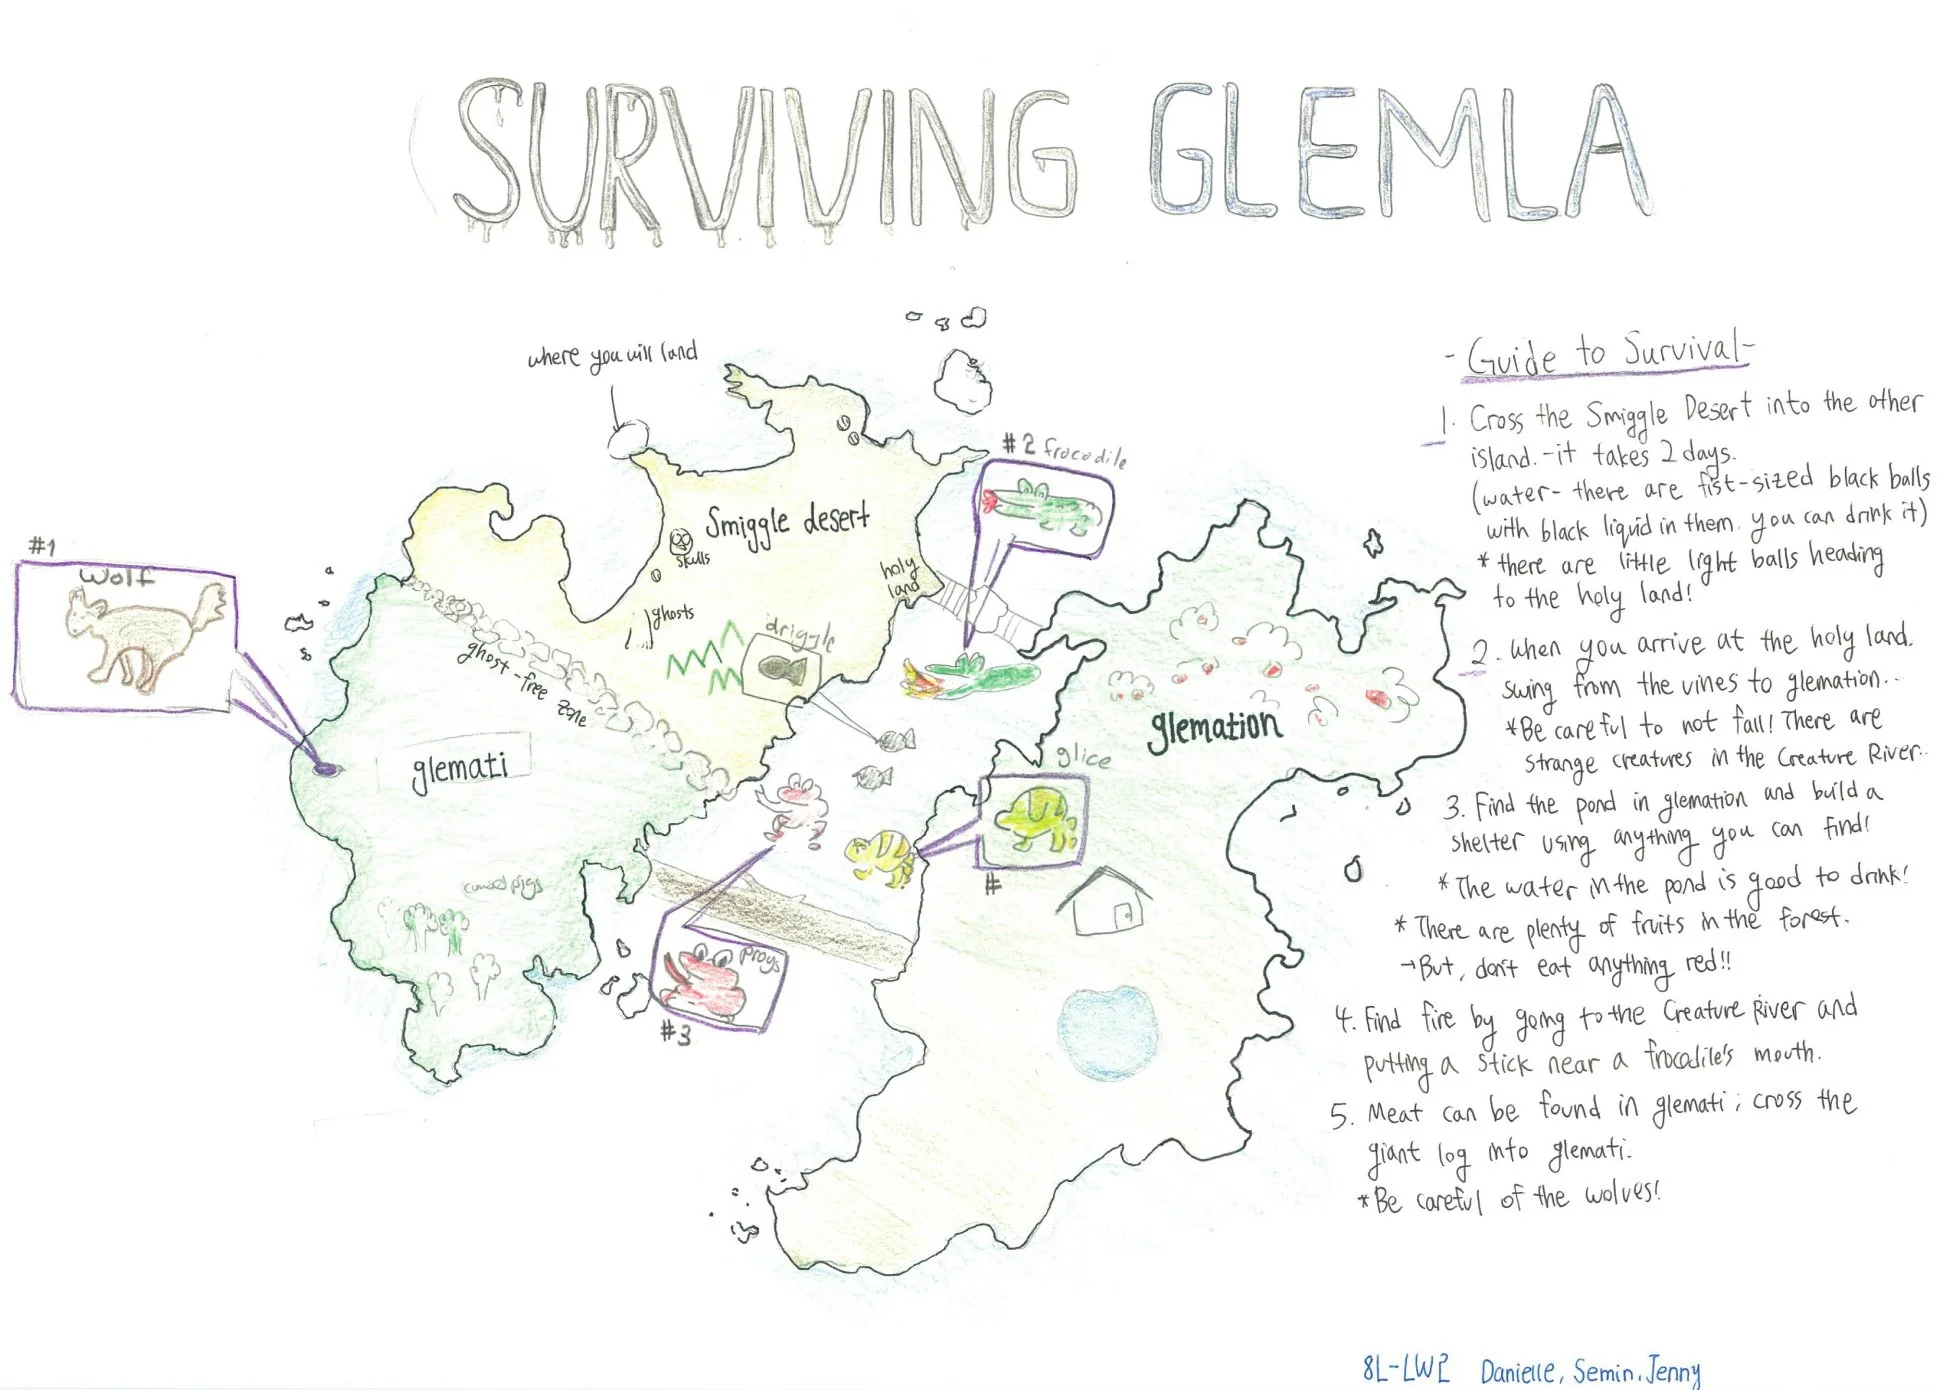 SURVIVING GLEMLA
where you will land
#2 frocodile
Smiggle desert
skulls
holy
land
ghosts
driggle
#1
Wolf
ghost-free zone
glemati
glemation
glice
#
progs
#3
pigs
- Guide to Survival -
1. Cross the Smiggle Desert into the other
island. - it takes 2 days.
(water - there are fist-sized black balls
with black liquid in them. you can drink it)
* there are little light balls heading
to the holy land!
2. When you arrive at the holy land.
swing from the vines to glemation..
*Be careful to not fall! There are
strange creatures in the Creature River..
3. Find the pond in glemation and build a
shelter using anything you can find!
*The water in the pond is good to drink!
* There are plenty of fruits in the forest.
→But, don't eat anything red!!
4. Find fire by going to the Creature River and
putting a stick near a frocodile's mouth.
5. Meat can be found in glemati; cross the
giant log into glemati.
*Be careful of the wolves!
8L-LW2 Danielle, Semin, Jenny